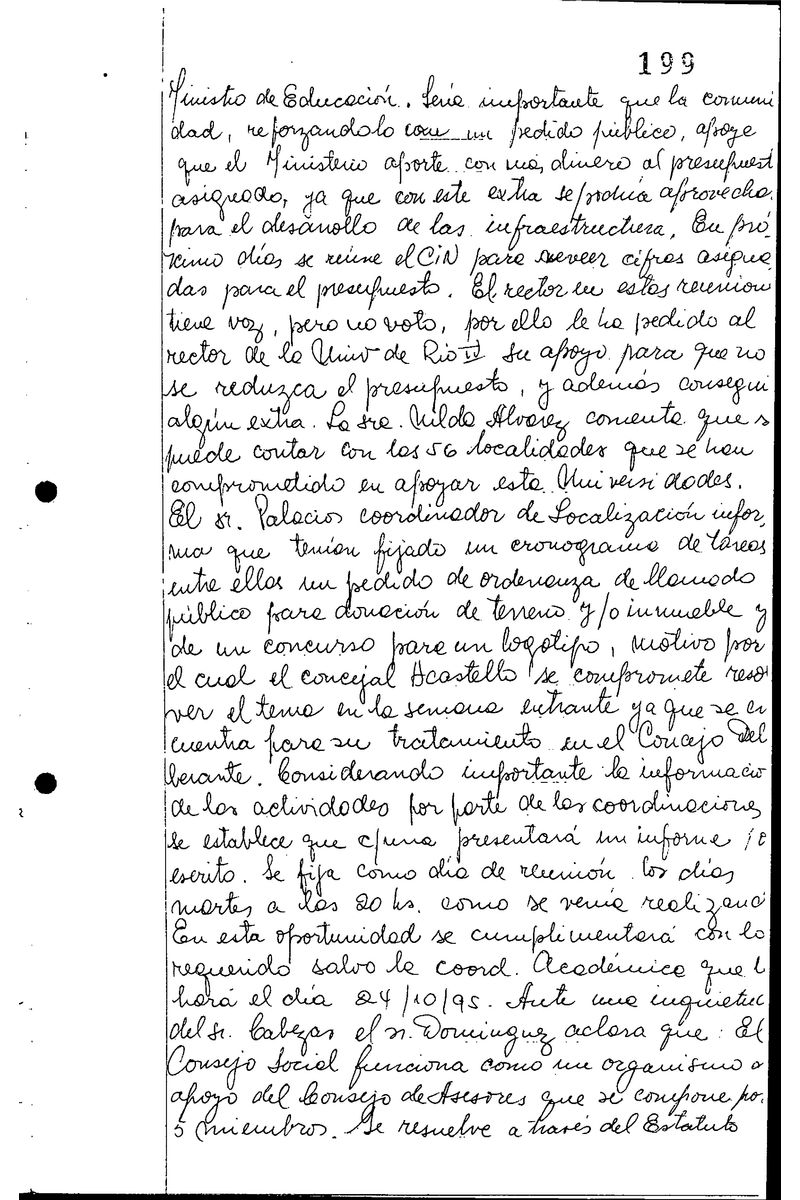 199
Ministro de Educación. Sería importante que la comuni
dad, reforzandolo con un pedido público, apoye
que el Ministerio aporte con más dinero al presupuest
asignado, ya que con este extra se podría aprovecha
para el desarrollo de las infraestructura. En pró
ximo días se reúne el CIN para preveer cifras asigna
das para el presupuesto. El rector en estas reunion
tiene voz, pero no voto, por ello le ha pedido al
rector de la Univ de Rio IV su apoyo para que no
se reduzca el presupuesto, y además consegui
algún extra. La sra. Nilda Alvarez comenta que s
puede contar con las 56 localidades que se han
comprometido en apoyar esta Universidades.
El sr. Palacios coordinador de Localización infor
ma que tenían fijado un cronograma de tareas
entre ellas un pedido de ordenanza de llamado
público para donación de terreno y/o inmueble y
de un concurso para un logotipo, motivo por
el cual el concejal Acastello se compromete resol
ver el tema en la semana entrante ya que se en
cuentra para su tratamiento en el Concejo Deli
berante. Considerando importante la informacio
de las actividades por parte de las coordinaciones
se establece que c/una presentará un informe
escrito. Se fija como día de reunión los días
martes a las 20 hs. como se venía realizand
En esta oportunidad se cumplimentará con lo
requerido salvo la coord. Académica que l
hará el día 24/10/95. Ante una inquietud
del sr. Cabezas el sr. Dominguez aclara que: El
Consejo Social funciona como un organismo
apoyo del Consejo de Asesores que se compone po
5 miembros. Se resuelve a través del Estatuto